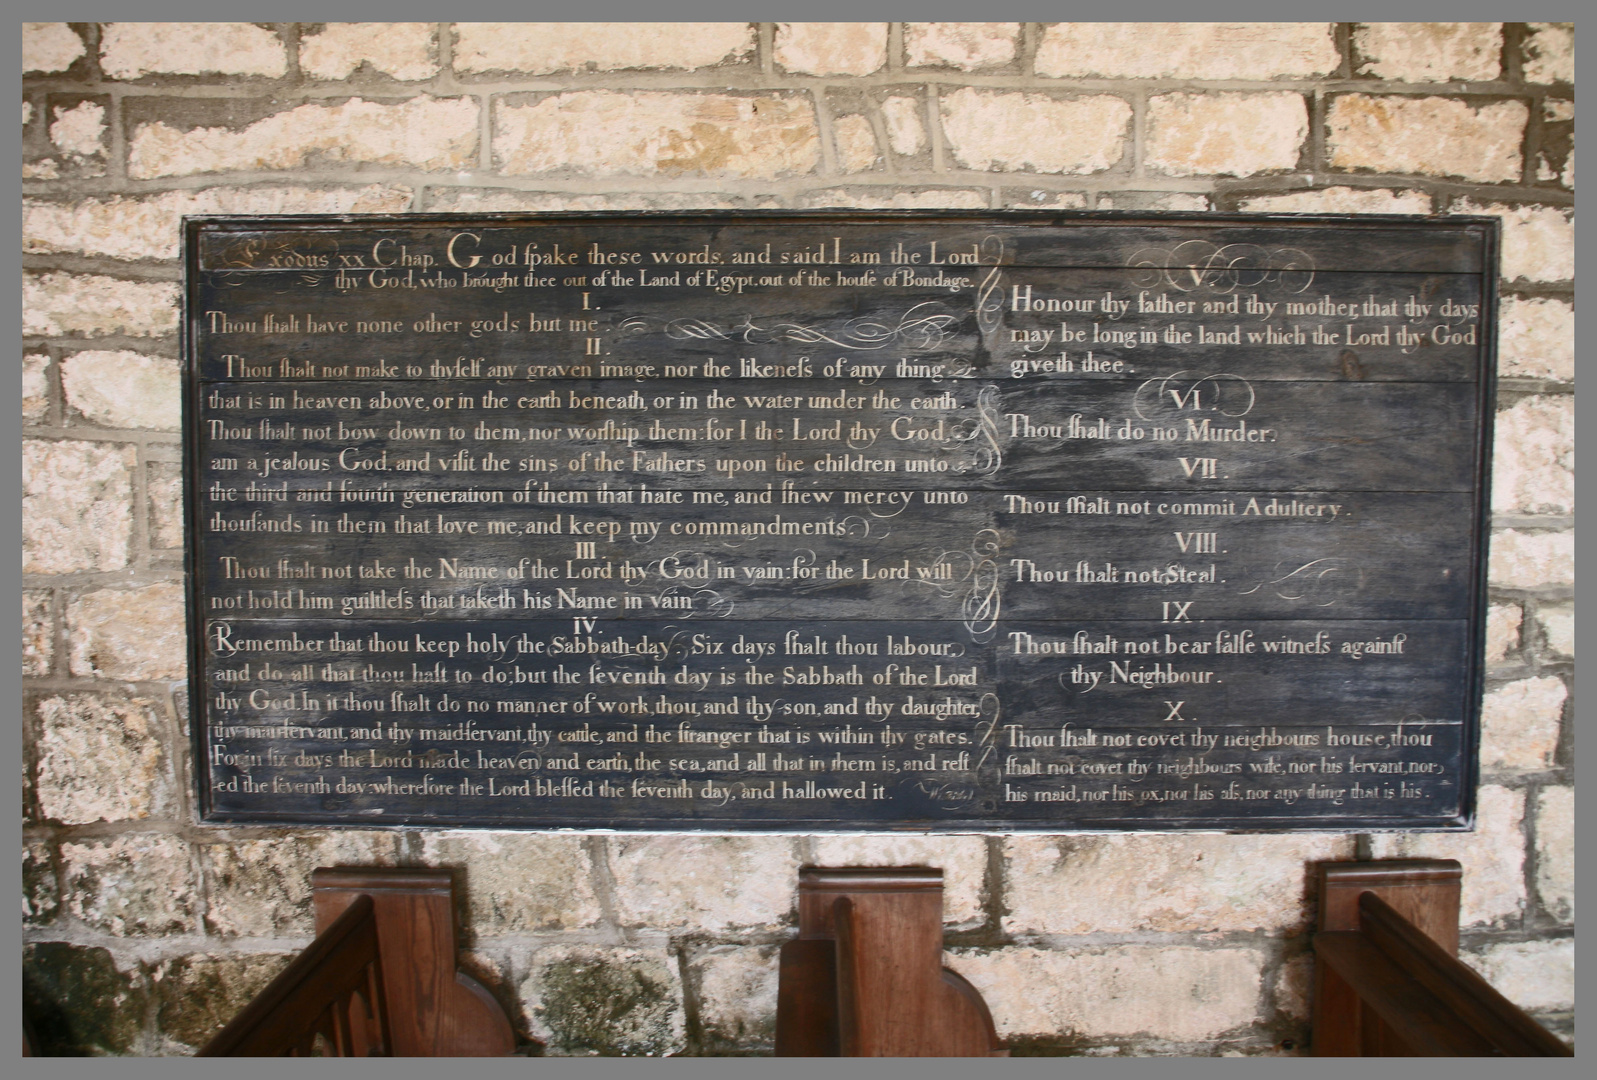 Exodus xx Chap. God ſpake these words, and said. I am the Lord
thy God, who brought thee out of the Land of Egypt. out of the houſe of Bondage.
I.
Thou ſhalt have none other gods but me.
II.
Thou ſhalt not make to thyſelf any graven image, nor the likeneſs of any thing
that is in heaven above, or in the earth beneath, or in the water under the earth.
Thou ſhalt not bow down to them, nor worſhip them: for I the Lord thy God,
am a jealous God. and viſit the sins of the Fathers upon the children unto
the third and fourth generation of them that hate me, and ſhew mercy unto
thouſands in them that love me, and keep my commandments.
III.
Thou ſhalt not take the Name of the Lord thy God in vain: for the Lord will
not hold him guiltleſs that taketh his Name in vain
IV.
Remember that thou keep holy the Sabbath-day. Six days ſhalt thou labour,
and do all that thou haſt to do; but the ſeventh day is the Sabbath of the Lord
thy God. In it thou ſhalt do no manner of work, thou, and thy son, and thy daughter,
thy manſervant, and thy maidſervant, thy cattle, and the ſtranger that is within thy gates.
For in ſix days the Lord made heaven and earth, the sea, and all that in them is, and reſt
-ed the ſeventh day: wherefore the Lord bleſſed the ſeventh day, and hallowed it.
V.
Honour thy father and thy mother, that thy days
may be long in the land which the Lord thy God
giveth thee.
VI.
Thou ſhalt do no Murder.
VII.
Thou ſhalt not commit Adultery.
VIII.
Thou ſhalt not Steal.
IX.
Thou ſhalt not bear falſe witneſs againſt
thy Neighbour.
X.
Thou ſhalt not covet thy neighbours house, thou
ſhalt not covet thy neighbours wife, nor his ſervant, nor
his maid, nor his ox, nor his aſs, nor any thing that is his.